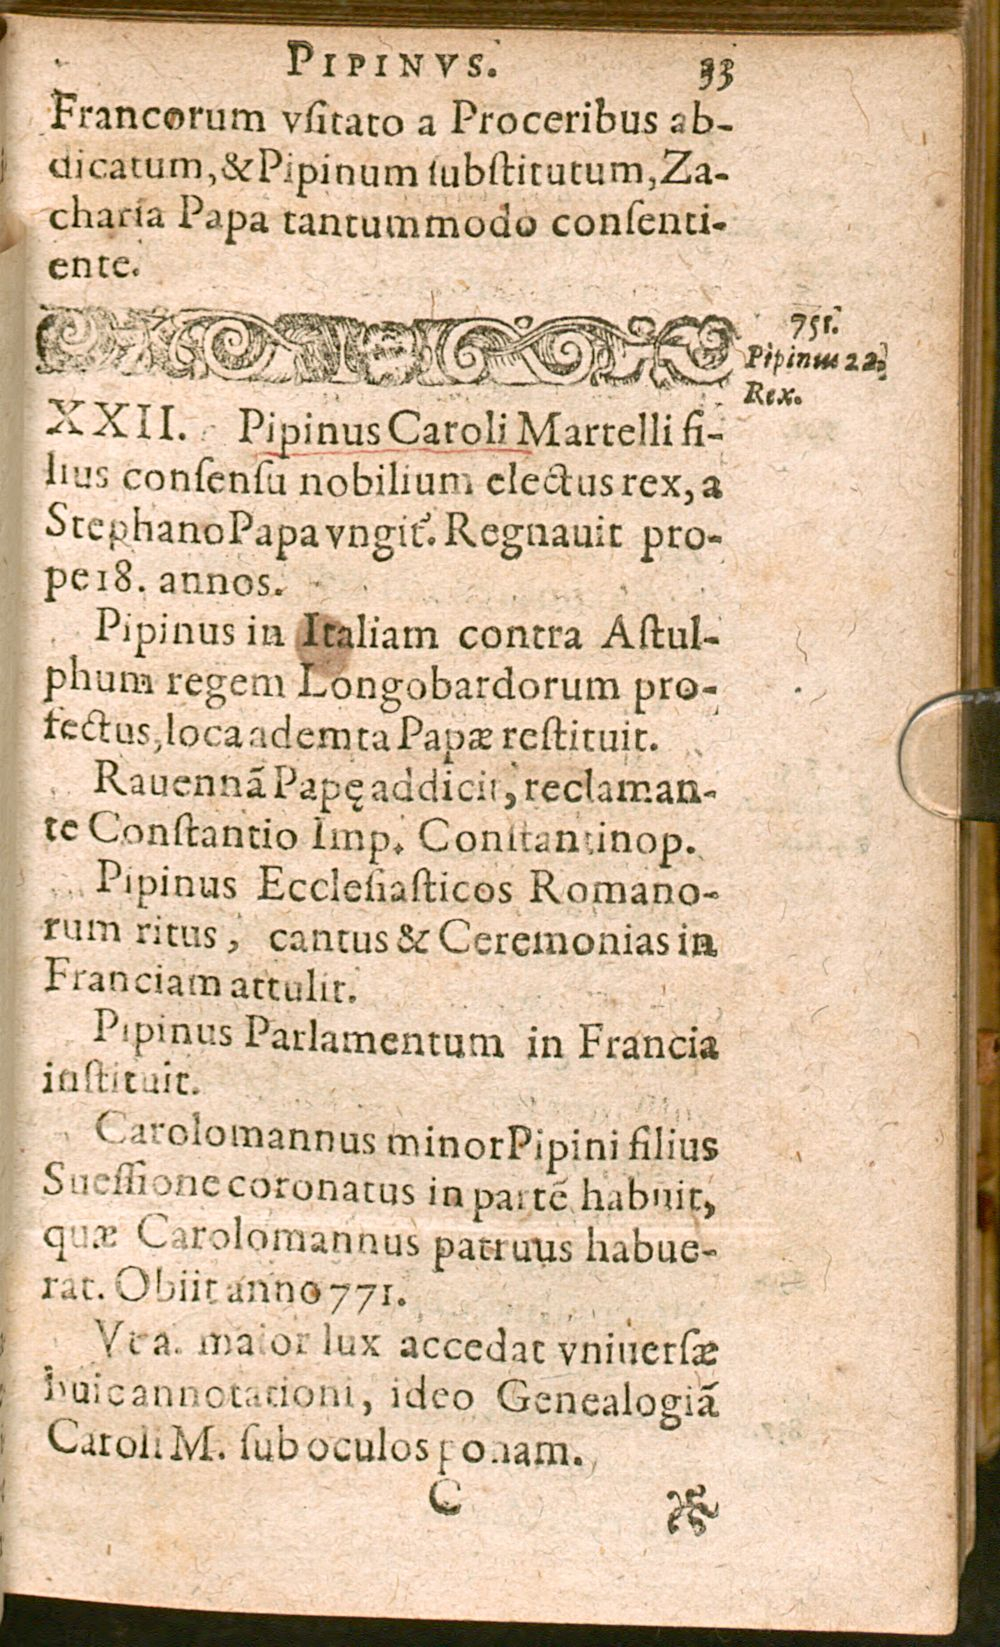 PIPINVS. 33
Francorum vſitato a Proceribus ab-
dicatum, & Pipinum ſubſtitutum, Za-
charia Papa tantummodo conſenti-
ente.
751.
Pipinus 22.
Rex.
XXII. Pipinus Caroli Martelli fi-
lius conſenſu nobilium electus rex, a
Stephano Papa vngit᷑. Regnauit pro-
pe 18. annos.
Pipinus in Italiam contra Aſtul-
phum regem Longobardorum pro-
fectus, loca ademta Papæ reſtituit.
Rauennã Papę addicit, reclaman-
te Conſtantio Imp. Conſtantinop.
Pipinus Eccleſiaſticos Romano-
rum ritus, cantus & Ceremonias in
Franciam attulit.
Pipinus Parlamentum in Francia
inſtituit.
Carolomannus minor Pipini filius
Sueſſione coronatus in partẽ habuit,
quæ Carolomannus patruus habue-
rat. Obiit anno 771.
Vt a. maior lux accedat vniuerſæ
huic annotationi, ideo Genealogiã
Caroli M. ſub oculos ponam.
C